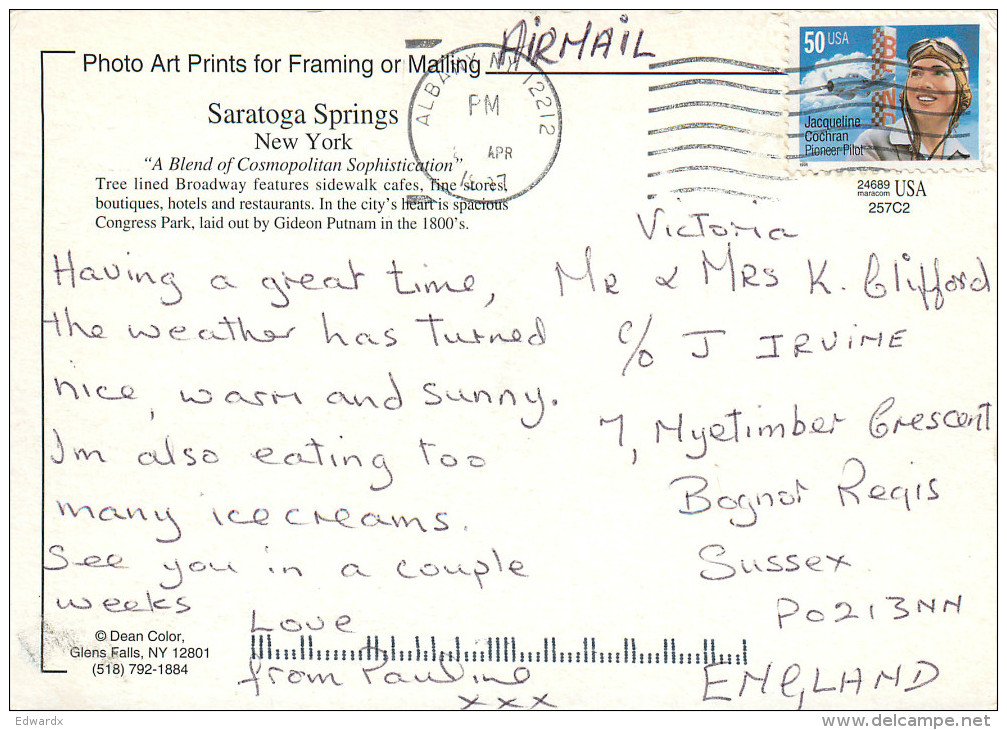 AIRMAIL
Photo Art Prints for Framing or Mailing
Saratoga Springs
New York
"A Blend of Cosmopolitan Sophistication"
Tree lined Broadway features sidewalk cafes, fine stores,
boutiques, hotels and restaurants. In the city's heart is spacious
Congress Park, laid out by Gideon Putnam in the 1800's.
ALBANY NY 12212
PM
APR
50 USA
Jacqueline
Cochran
Pioneer Pilot
1996
24689
maracom USA
257C2
Having a great time,
the weather has turned
nice, warm and sunny.
Im also eating too
many icecreams.
See you in a couple
weeks
Love
from Pauline
xxx
Victoria
MR & MRS K. Clifford
c/o J IRVINE
7, Nyetimber Crescent
Bognor Regis
Sussex
PO213NN
ENGLAND
© Dean Color,
Glens Falls, NY 12801
(518) 792-1884
Edwardx
www.delcampe.net